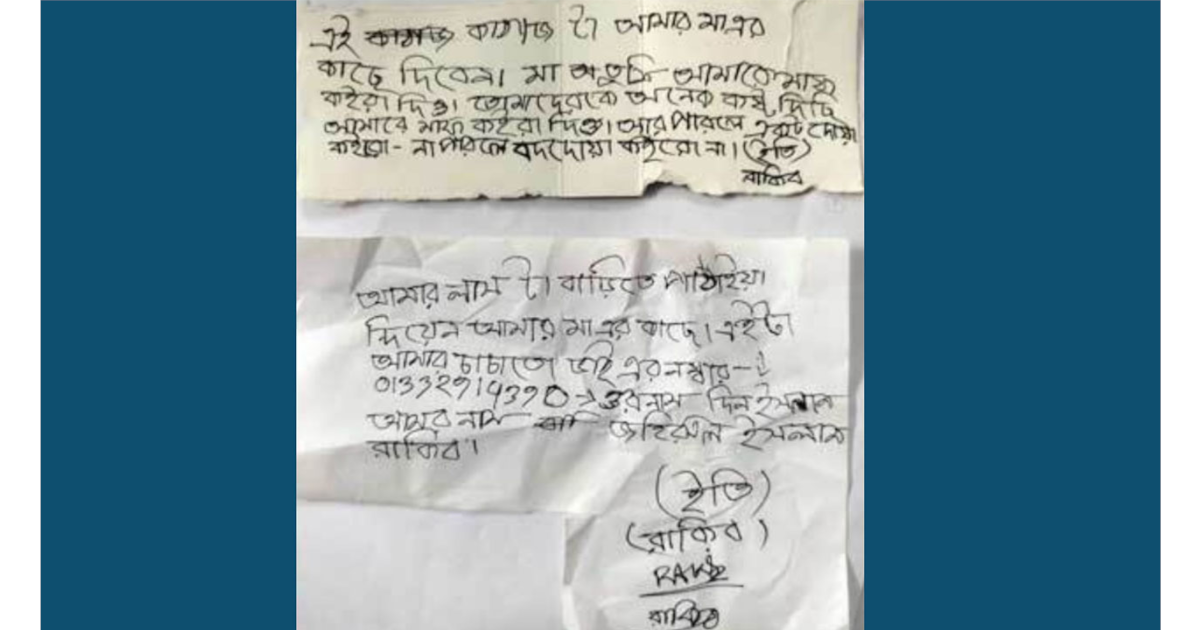 এই কাগজ কাগজ টা আমার মাএর
কাছে দিবেন। মা তুমি আমাকে মাফ
কইরা দিও। তোমাদেরকে অনেক কষ্ট দিছি
আমারে মাফ কইরা দিও। আর পারলে একটু দোয়া
কইরো - না পারলে বদদোয়া কইরো না। (ইতি)
রাকিব
আমার লাস টা বাড়িতে পাঠাইয়া
দিয়েন আমার মাএর কাছে। এইটা
আমার চাচাতো ভাই এর নম্বার -
→ ওর নাম দিন ইসলাম
আমার নাম জহিরুল ইসলাম
রাকিব।
(ইতি)
(রাকিব)
রাকিব